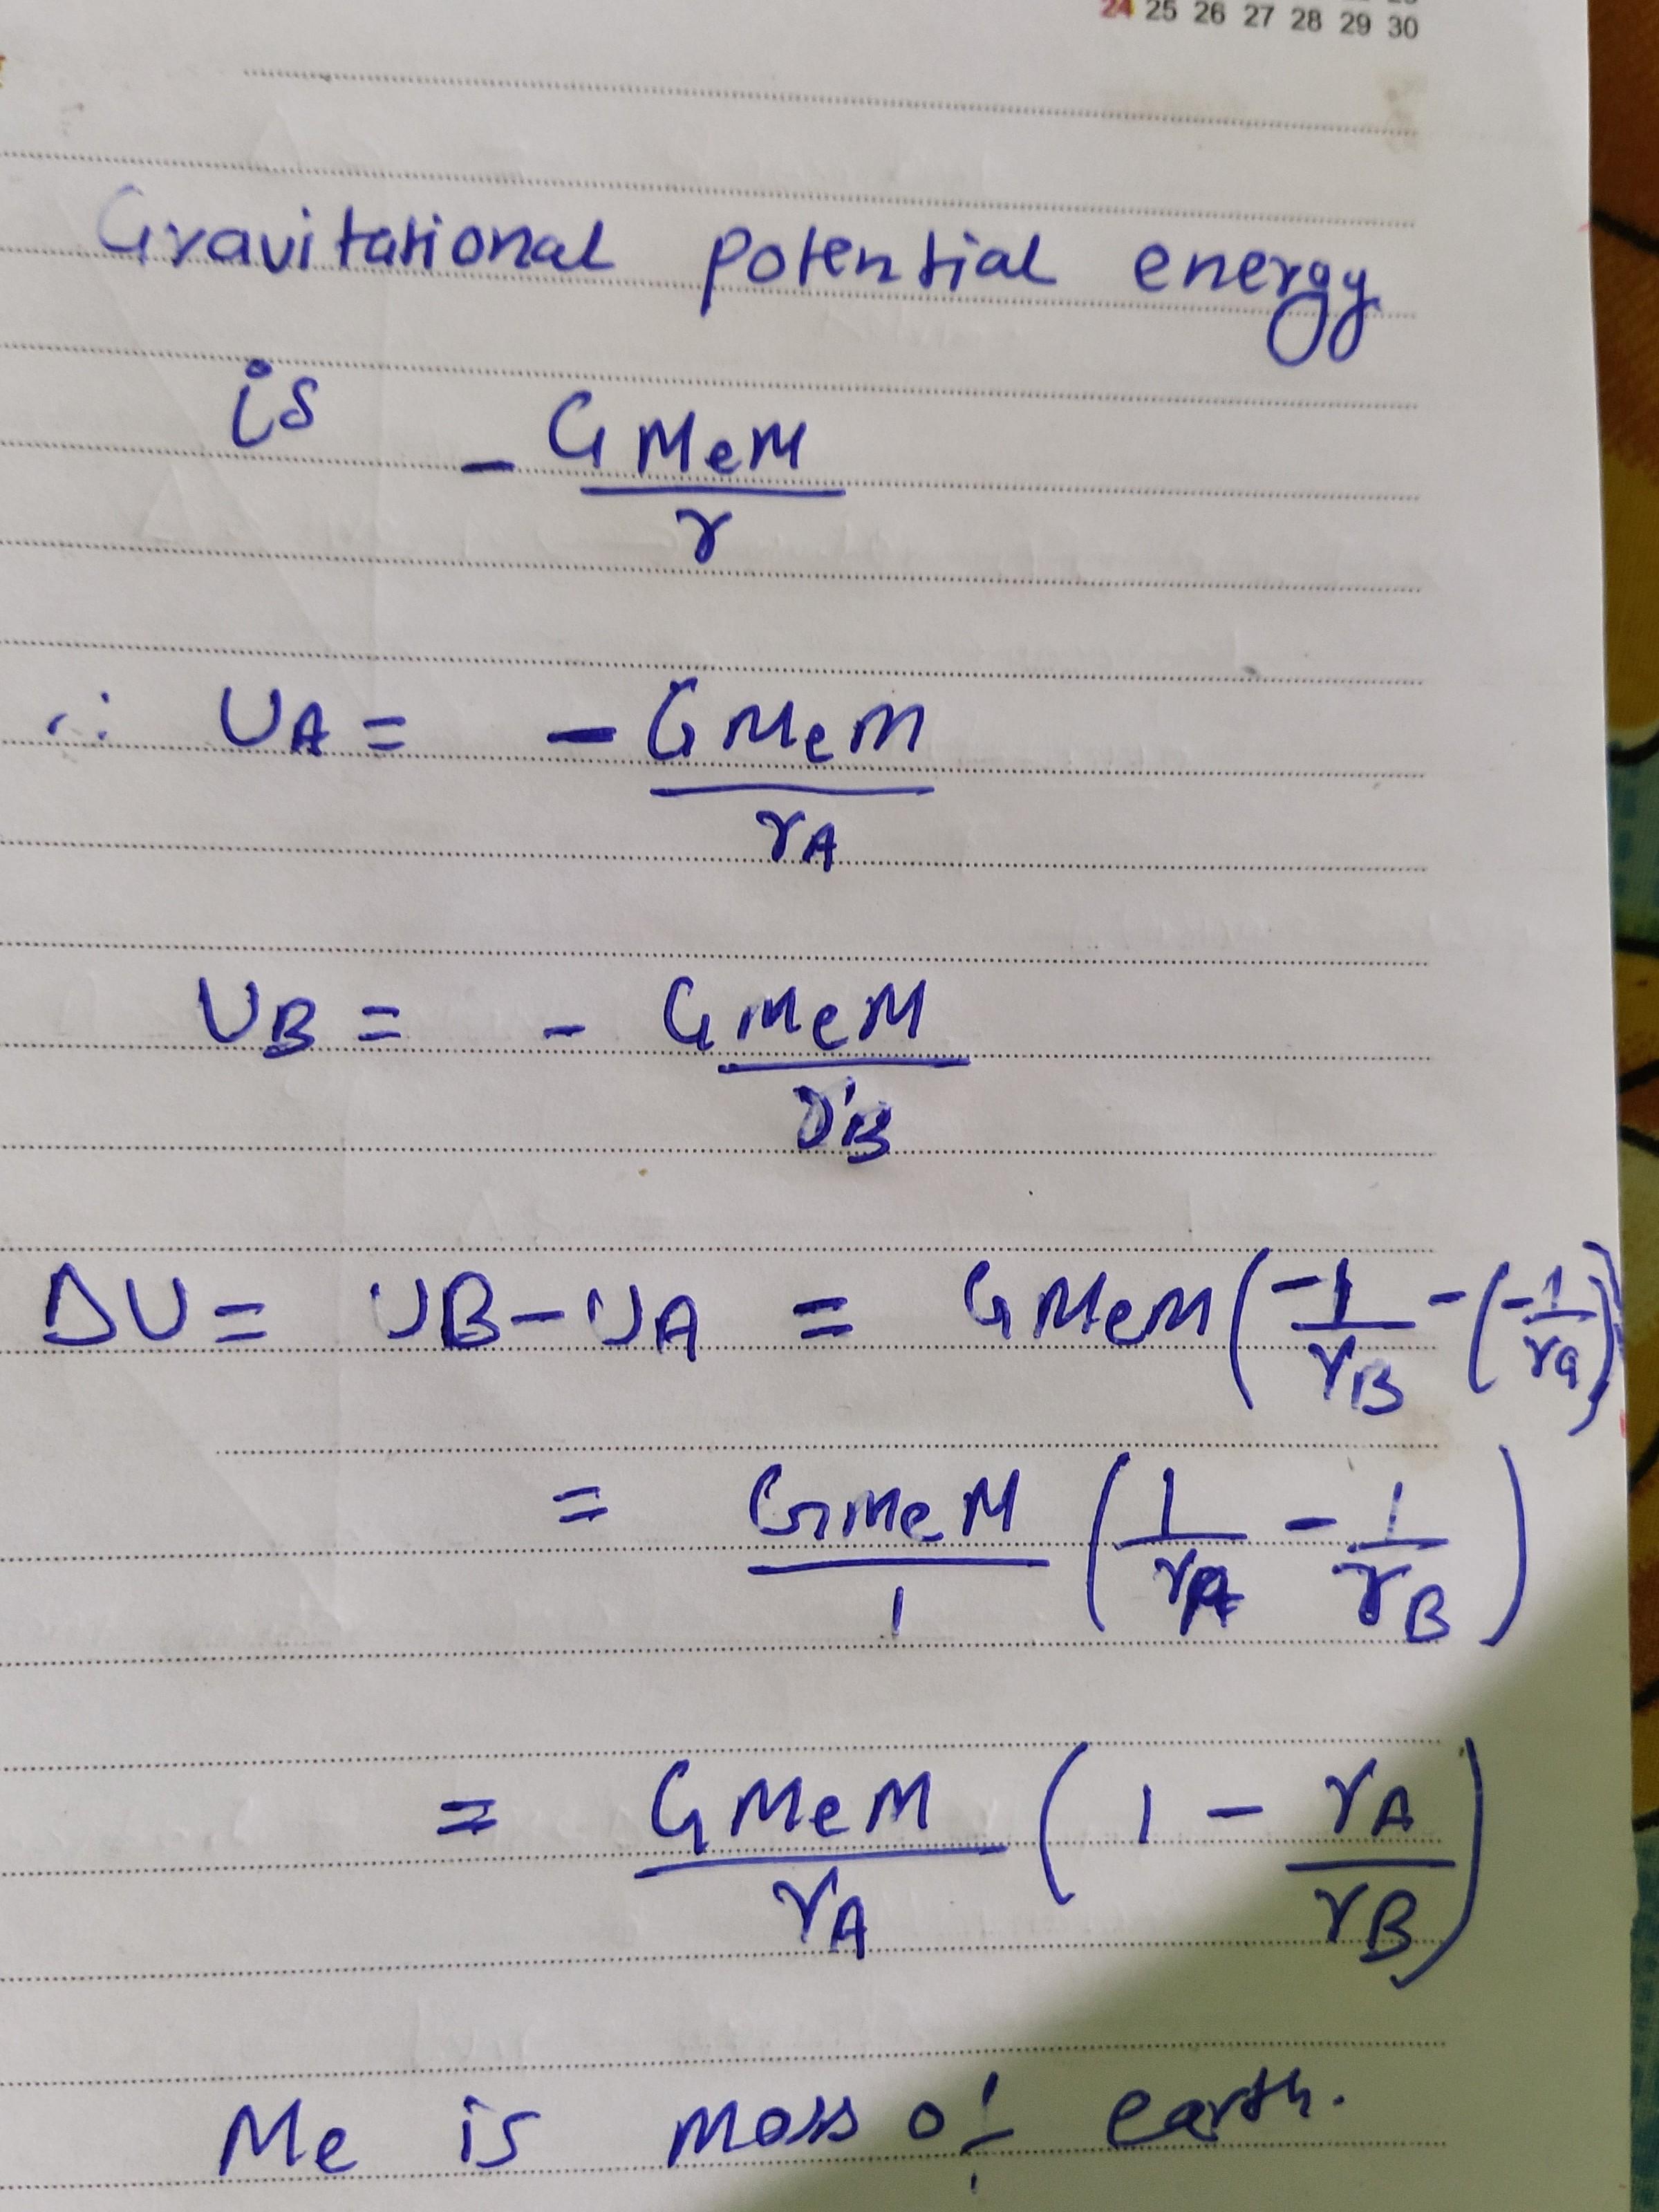 24 25 26 27 28 29 30
Gravitational potential energy
is - GMeM
r
∴ UA = - GMeM
rA
UB = - GMeM
rB
ΔU = UB - UA = GMeM (-1/rB - (-1/rA))
= GMeM/1 (1/rA - 1/rB)
= GMeM/rA (1 - rA/rB)
Me is mass of earth.